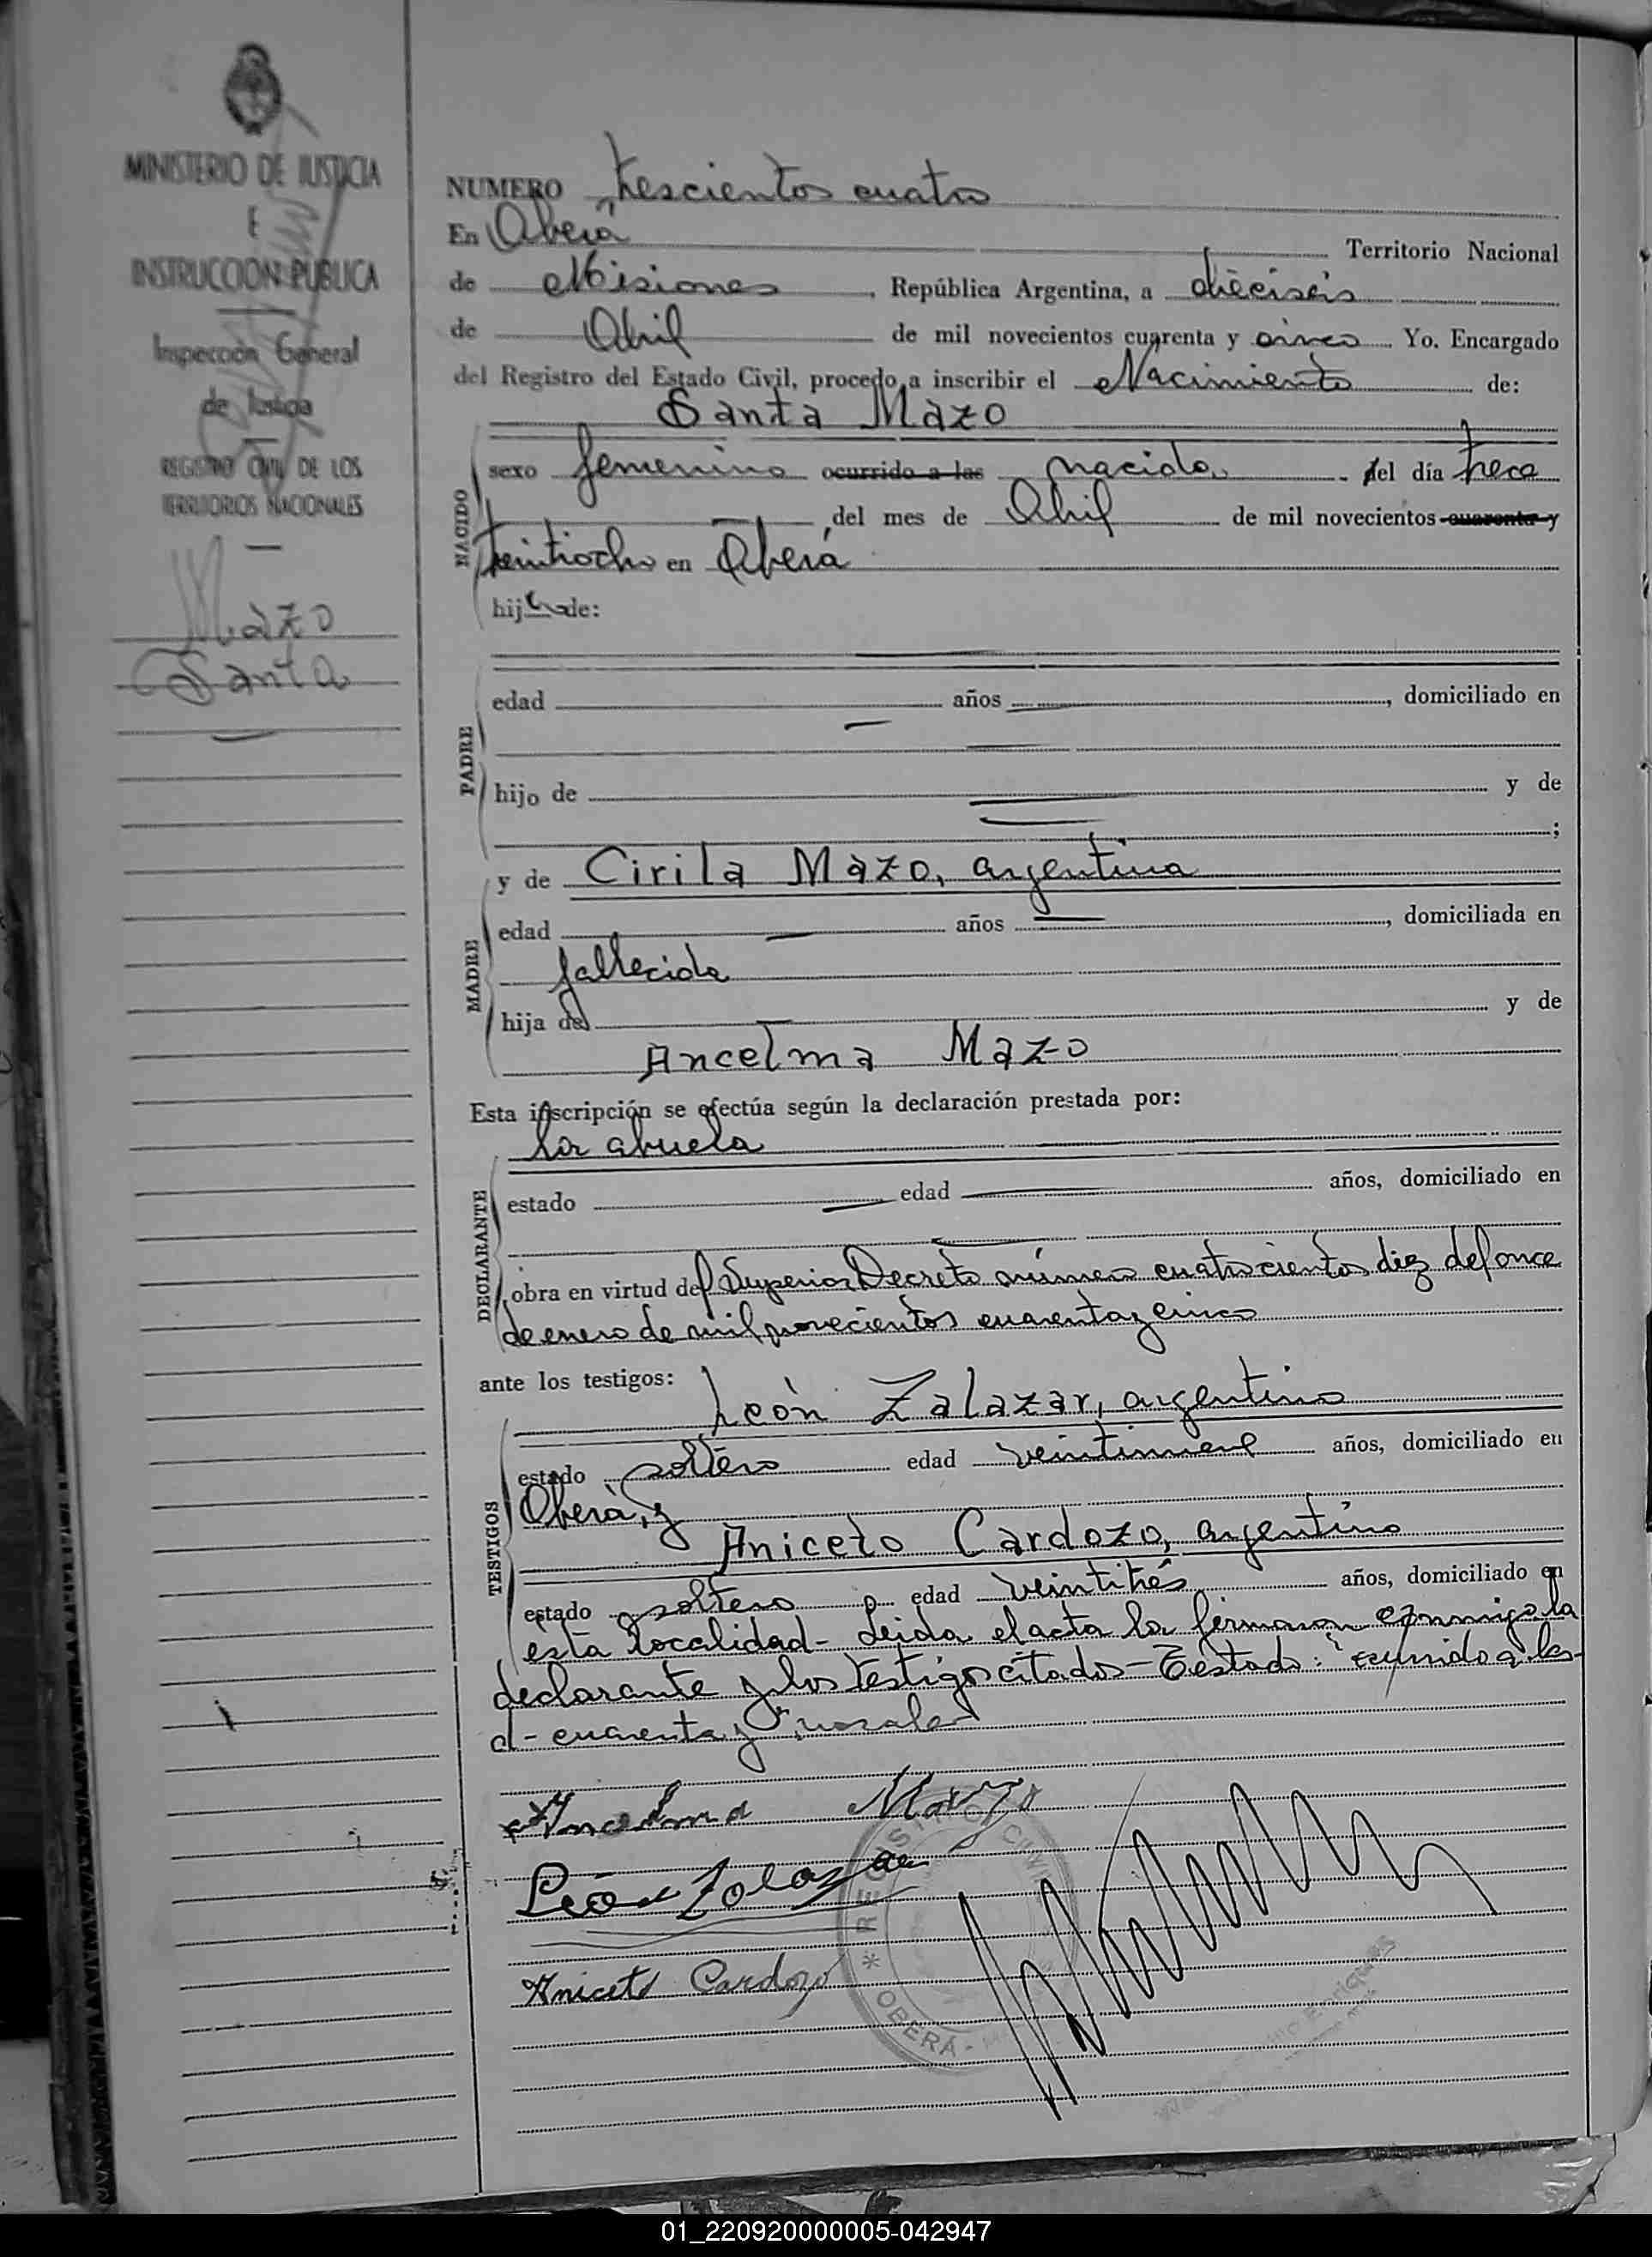 MINISTERIO DE JUSTICIA
E
INSTRUCCION PUBLICA
Inspección General
de Justicia
REGISTRO CIVIL DE LOS
TERRITORIOS NACIONALES
Mazo
Santa
NUMERO trescientos cuatro
En Oberá Territorio Nacional
de Misiones, República Argentina, a dieciseis
de Abril de mil novecientos cuarenta y cinco Yo. Encargado
del Registro del Estado Civil, procedo a inscribir el Nacimiento de:
Santa Mazo
NACIDO
sexo femenino ocurrido a las nacida el día trece
del mes de Abril de mil novecientos cuarenta y
treintiocho en Oberá
hija de:
PADRE
edad años , domiciliado en
hijo de y de
;
MADRE
y de Cirila Mazo, argentina
edad años , domiciliada en
fallecida
hija de y de
Ancelma Mazo
Esta inscripción se efectúa según la declaración prestada por:
la abuela
DECLARANTE
estado edad años, domiciliado en
obra en virtud del Superior Decreto número cuatrocientos diez del once
de enero de mil novecientos cuarenta y cinco
ante los testigos:
León Zalazar, argentino
TESTIGOS
estado soltero edad veintinueve años, domiciliado en
Oberá, y
Aniceto Cardozo, argentino
estado soltero edad veintitrés años, domiciliado en
esta localidad- Leida el acta la firmaron conmigo la
declarante y los testigos citados- Testado: "ocurrido a las-
d- cuarenta y" no vale
Ancelma Mazo
León Zalazar
Aniceto Cardozo
* REGISTRO CIVIL
OBERÁ -
01_220920000005-042947